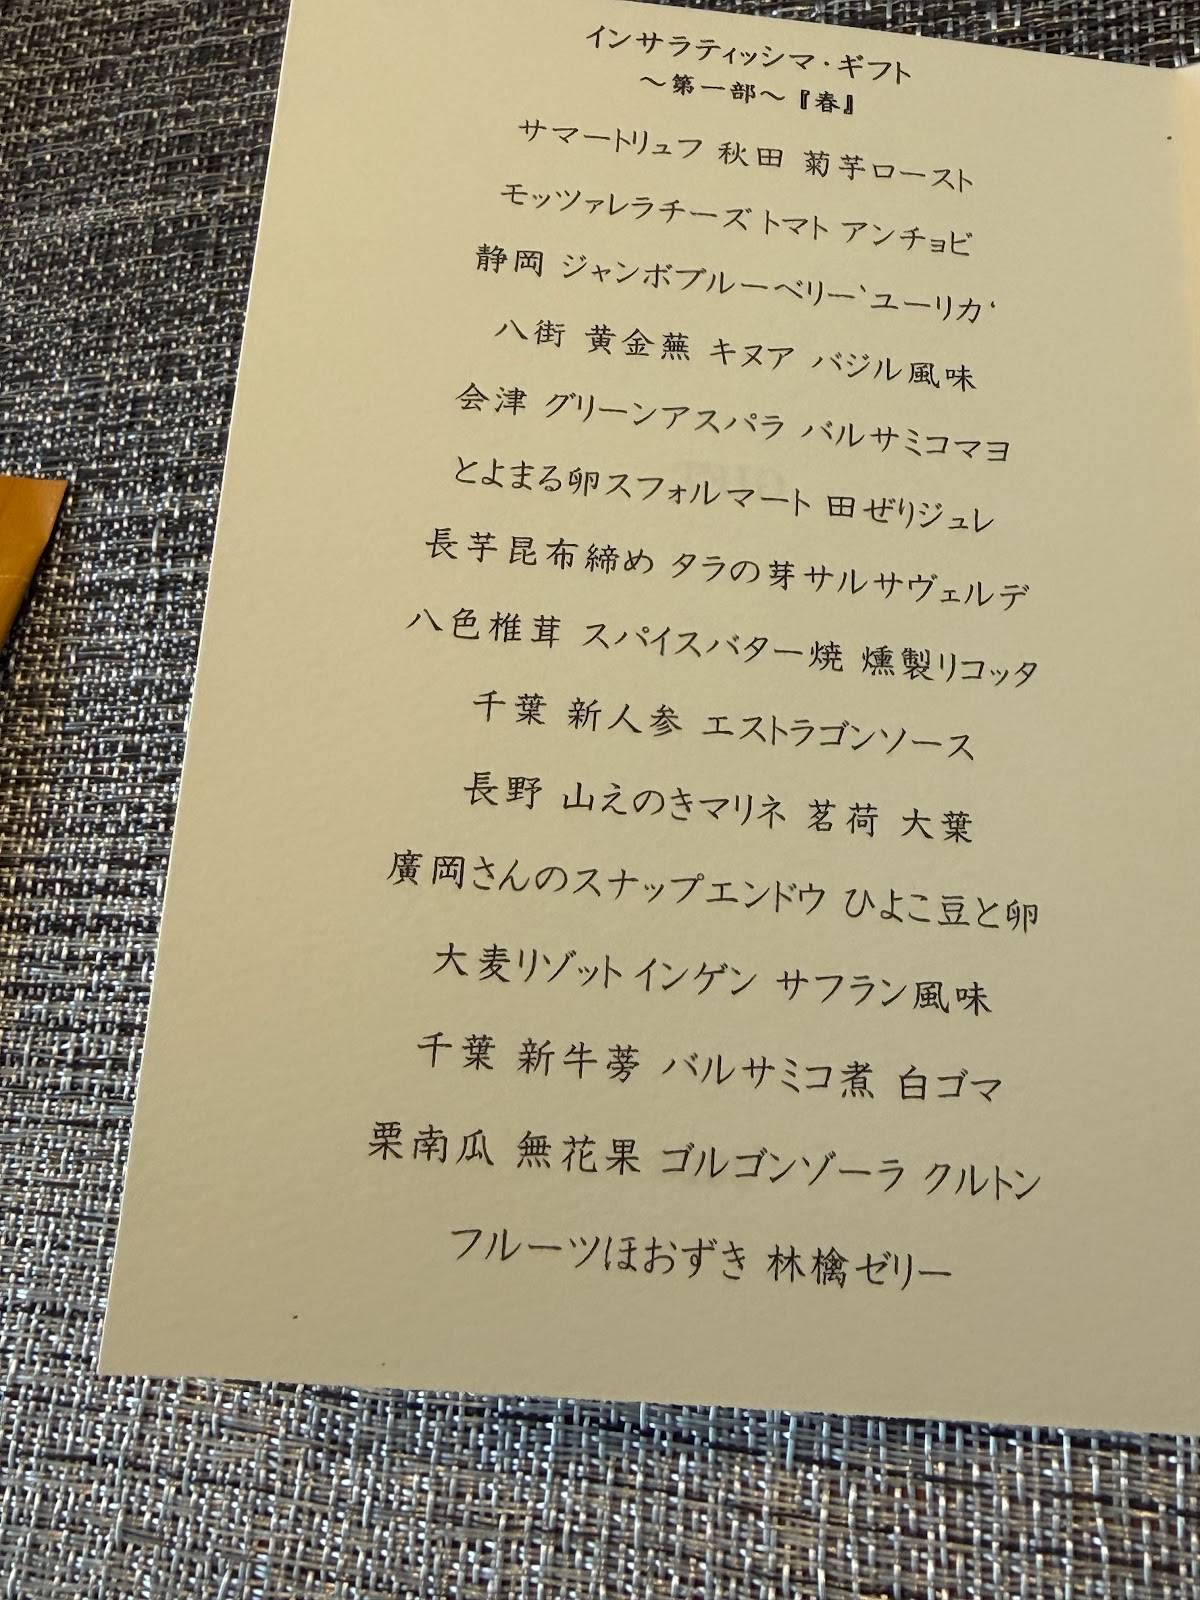 インサラティッシマ・ギフト
～第一部～『春』
サマートリュフ 秋田 菊芋ロースト
モッツァレラチーズ トマト アンチョビ
静岡 ジャンボブルーベリー‵ユーリカ‵
八街 黄金蕪 キヌア バジル風味
会津 グリーンアスパラ バルサミコマヨ
とよまる卵スフォルマート 田ぜりジュレ
長芋昆布締め タラの芽サルサヴェルデ
八色椎茸 スパイスバター焼 燻製リコッタ
千葉 新人参 エストラゴンソース
長野 山えのきマリネ 茗荷 大葉
廣岡さんのスナップエンドウ ひよこ豆と卵
大麦リゾット インゲン サフラン風味
千葉 新牛蒡 バルサミコ煮 白ゴマ
栗南瓜 無花果 ゴルゴンゾーラ クルトン
フルーツほおずき 林檎ゼリー